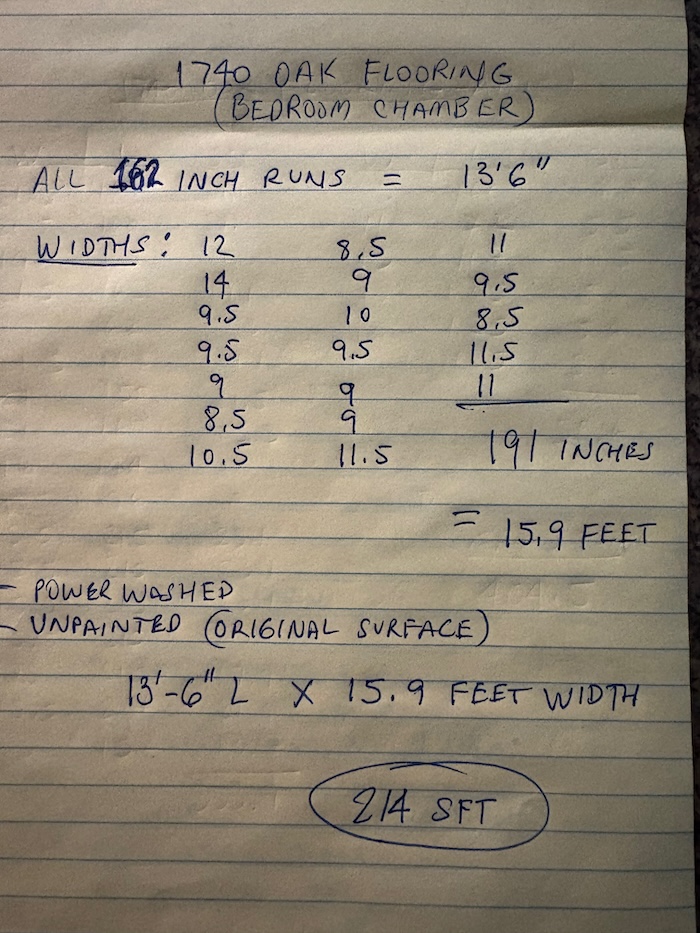 1740 OAK FLOORING
(BEDROOM CHAMBER)
ALL 162 INCH RUNS = 13'6"
WIDTHS: 12 8.5 11
14 9 9.5
9.5 10 8.5
9.5 9.5 11.5
9 9 11
8.5 9
10.5 11.5 191 INCHES
= 15.9 FEET
- POWER WASHED
- UNPAINTED (ORIGINAL SURFACE)
13'-6" L X 15.9 FEET WIDTH
214 SFT